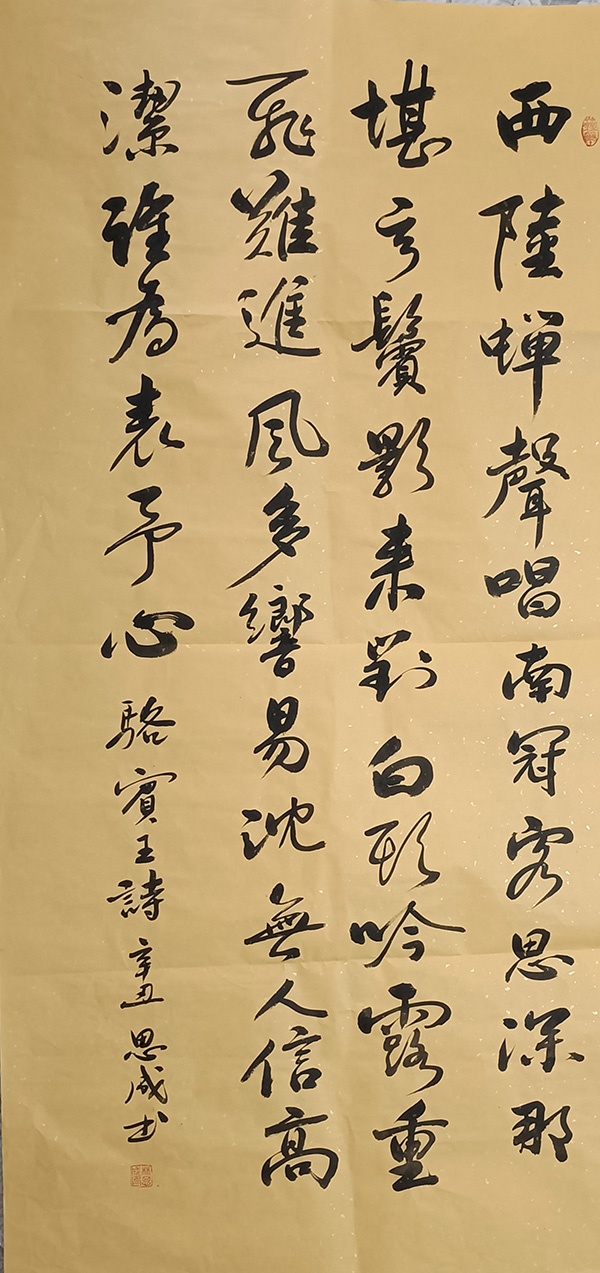 西陸蟬聲唱南冠客思深那
堪玄鬢影来對白頭吟露重
飛難進風多響易沈無人信高
潔誰為表予心駱賓王詩辛丑思成书